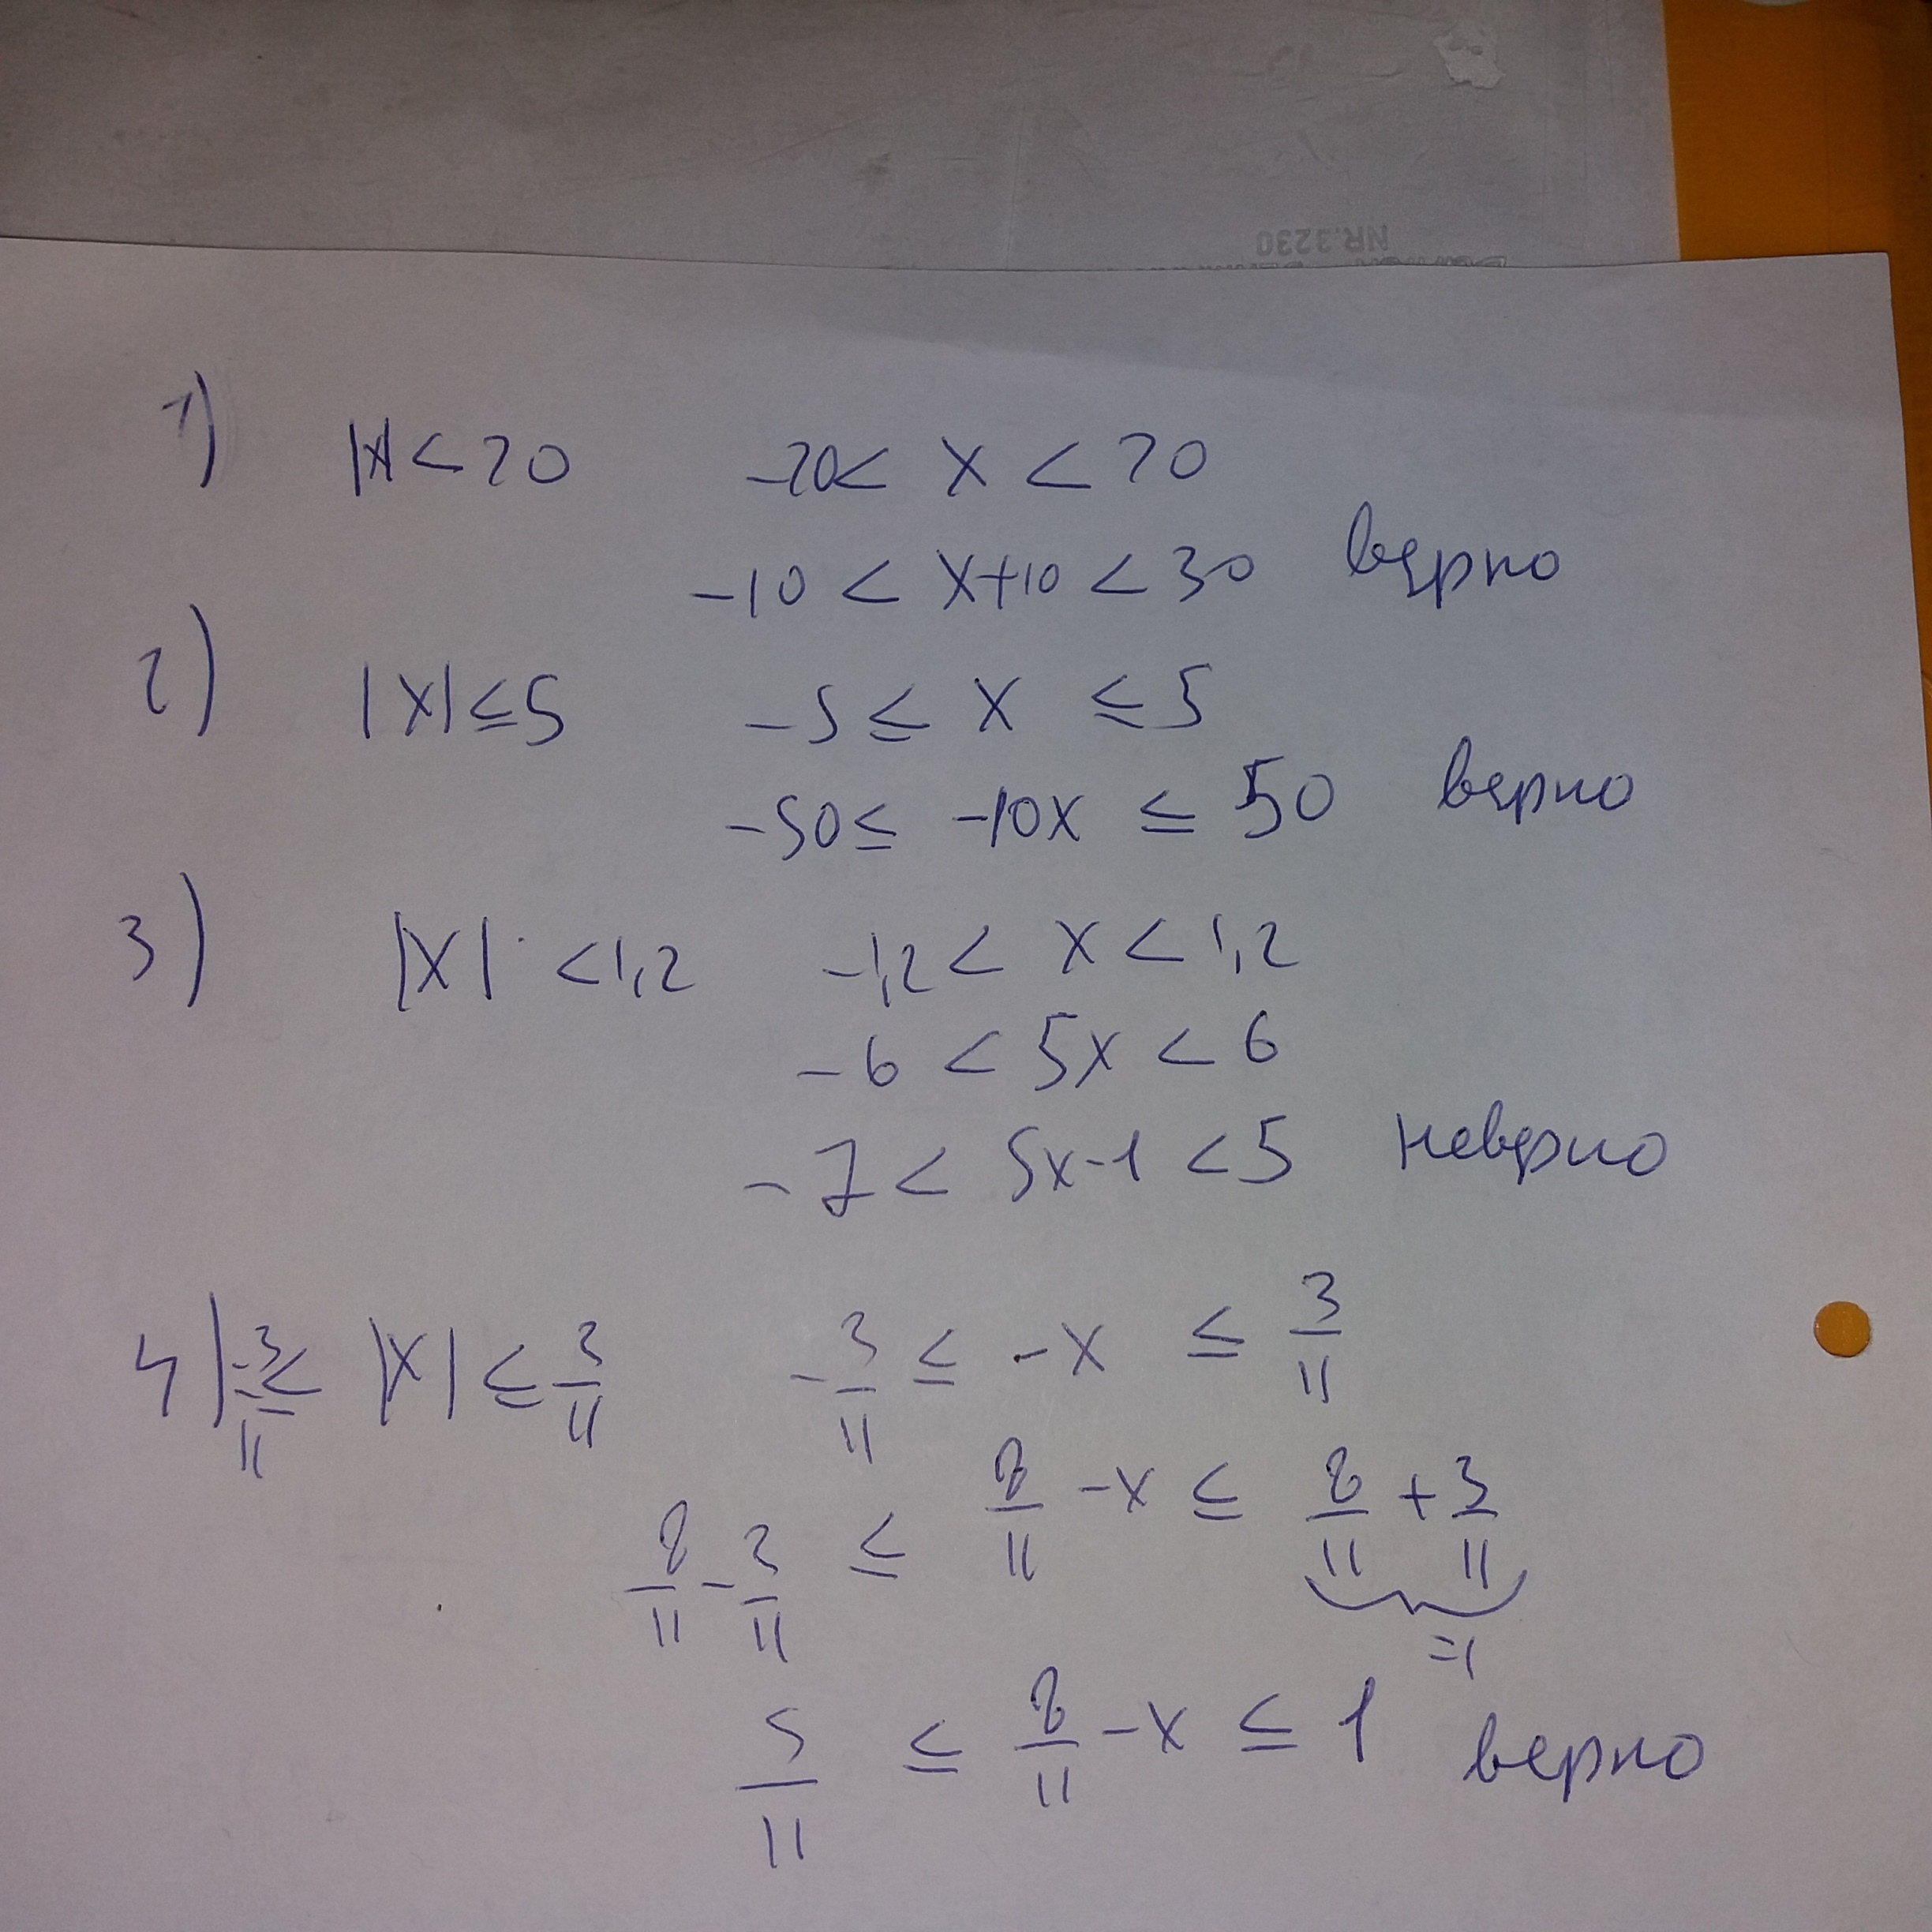 NR.3230
1) |x| < 20   -20 < x < 20
-10 < x+10 < 30 верно
2) |x| ≤ 5   -5 ≤ x ≤ 5
-50 ≤ -10x ≤ 50 верно
3) |x| < 1,2   -1,2 < x < 1,2
-6 < 5x < 6
-7 < 5x-1 < 5 неверно
4) -3/11 ≤ |x| ≤ 3/11   -3/11 ≤ -x ≤ 3/11
8/11 - 3/11 ≤ 8/11 - x ≤ 8/11 + 3/11
=1
5/11 ≤ 8/11 - x ≤ 1 верно